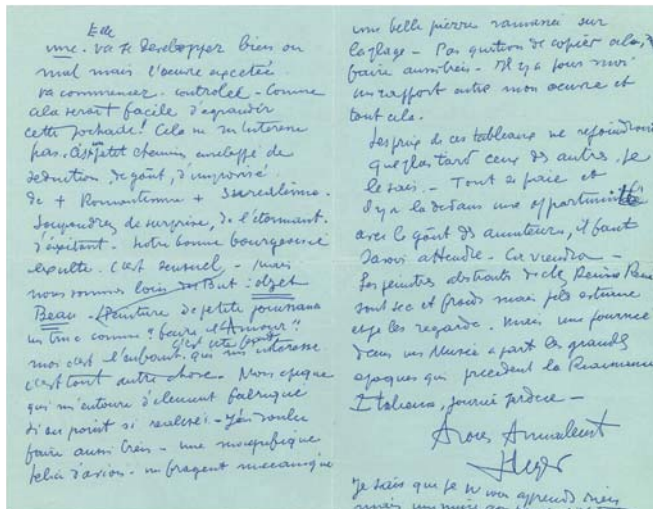 Elle
une. va se developper bien ou
mal mais l'oeuvre
va commencer. controlée. Comme
cela serait facile d'agrandir
cette pochade! Cela ne m'interesse
pas. petit chemin, enveloppé de
seduction, de goût, d'improvisé
de + Romantisme + Surealisme.
Saupoudrez de surprise, de l'étonnant.
d'excitant. Notre bonne bourgeoisie
exulte. C'est sensuel - mais
nous sommes loin du But: objet
Beau - Peinture de petite jouissance
un truc comme "faire l'Amour".
c'est vite
moi c'est l'enfant. qui m'interesse.
c'est tout autre chose. Mon epoque
qui m'entoure d'element fabriqué
si au point si realisé. J'ai voulu
faire aussi bien - une magnifique
helice d'avion. un fragent mecanique
une belle pierre ramassée sur
la plage - Pas question de copier cela,
faire aussi bien. Il y a pour moi
un rapport entre mon oeuvre et
tout cela.
Les prix de ces tableaux ne rejoindront
que plus tard ceux des autres. je
le sais. - Tout se paie et
il y a la dedans une opportunité
avec le goût des amateurs, il faut
savoir attendre. Ca viendra -
Les peintres abstraits de chez Denise René
sont sec et froids mais je les estime
et je les regarde. mais une journée
dans un Musée a part les grandes
epoques qui precedent la Renaissance
Italienne, journée perdue -
Leger
Je sais que je ne vous apprends rien
mais